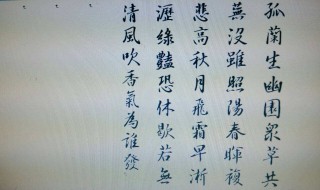 孤蘭生幽園衆草共
蕪沒雖照陽春暉複
悲高秋月飛霜早淅
瀝綠豔恐休歇若無
清風吹香氣為誰發